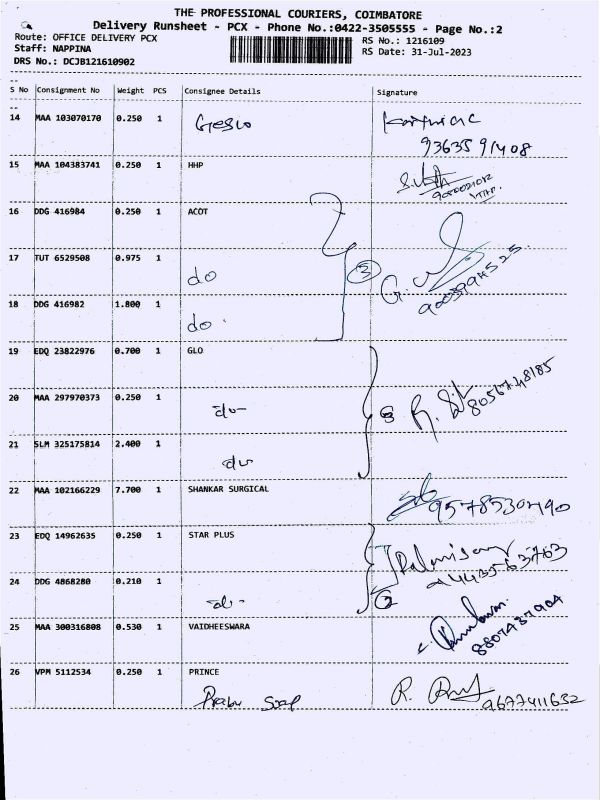 THE PROFESSIONAL COURIERS, COIMBATORE
Delivery Runsheet - PCX - Phone No.:0422-3505555 - Page No.:2
Route: OFFICE DELIVERY PCX
RS No.: 1216109
Staff: NAPPINA
RS Date: 31-Jul-2023
DRS No.: DCJB121610902
S No Consignment No Weight PCS Consignee Details Signature
14 MAA 103070170 0.250 1
9363591408
15 MAA 104383741 0.250 1 HHP
16 DDG 416984 0.250 1 ACOT
17 TUT 6529508 0.975 1 do
3
18 DDG 416982 1.800 1 do.
19 EDQ 23822976 0.700 1 GLO
20 MAA 297970373 0.250 1 do-
3 8056748185
21 SLM 325175814 2.400 1 do
22 MAA 102166229 7.700 1 SHANKAR SURGICAL
9578530490
23 EDQ 14962635 0.250 1 STAR PLUS
24 DDG 4868280 0.210 1 do-
9443563763
2
25 MAA 300316808 0.530 1 VAIDHEESWARA
8807437904
26 VPM 5112534 0.250 1 PRINCE
9677411632